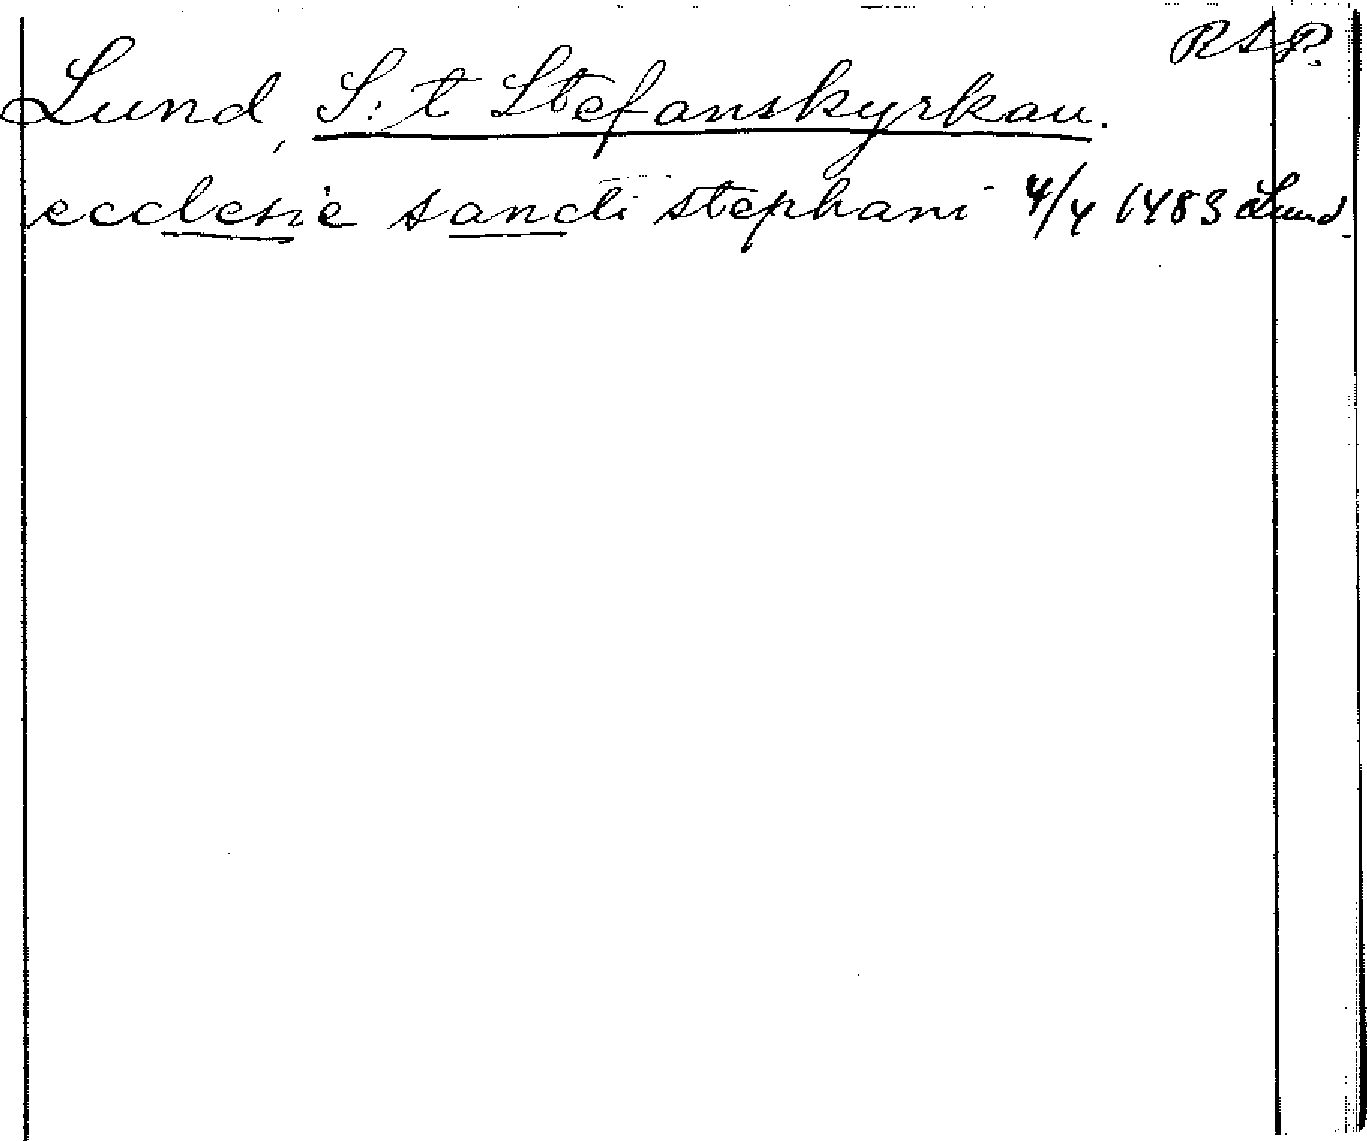 RAP.
Lund, S:t Stefanskyrkan.
ecclesie sancti stephani 4/4 1483 Lund